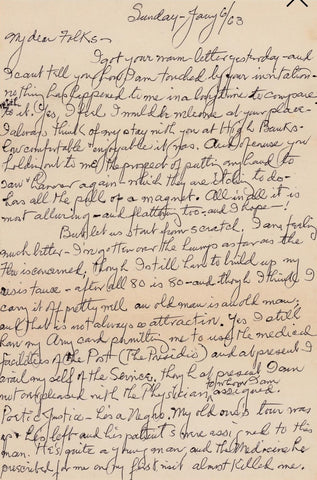 Sunday - Jany 6/63
My dear Folks -
I got your warm letter yesterday - and
I can't tell you how I am touched by your invitation -
nothing has happened to me in a long time to compare
with
to it. Yes, I feel I would be welcome at your place -
I always think of my stay with you at High Banks -
how comfortable - enjoyable it was. And of course you
holding out to me the prospect of putting my hand to
saw & hammer again - which they are itching to do -
has all the pull of a magnet. All in all it is
most alluring - and flattering too - and I hope - !
But let us start from scratch. I am feeling
much better - I've gotten over the hump as far as the
flu is concerned, though I still have to build up my
resistance - after all 80 is 80 - and though I think I
carry it off pretty well an old man is an old man,
and that is not always an attraction. Yes I still
have my Army card permitting me to use the medical
facilities of the Post (The Presidio) and at present I
avail myself of the Service, though at present I am
not over pleased with the Physician to whom I am assigned.
Poetic Justice - he's a Negro. My old one's tour was
up & he left and his patients were assigned to this
man. He's quite a young man and the Medicine he
prescribed for me on my first visit almost killed me.